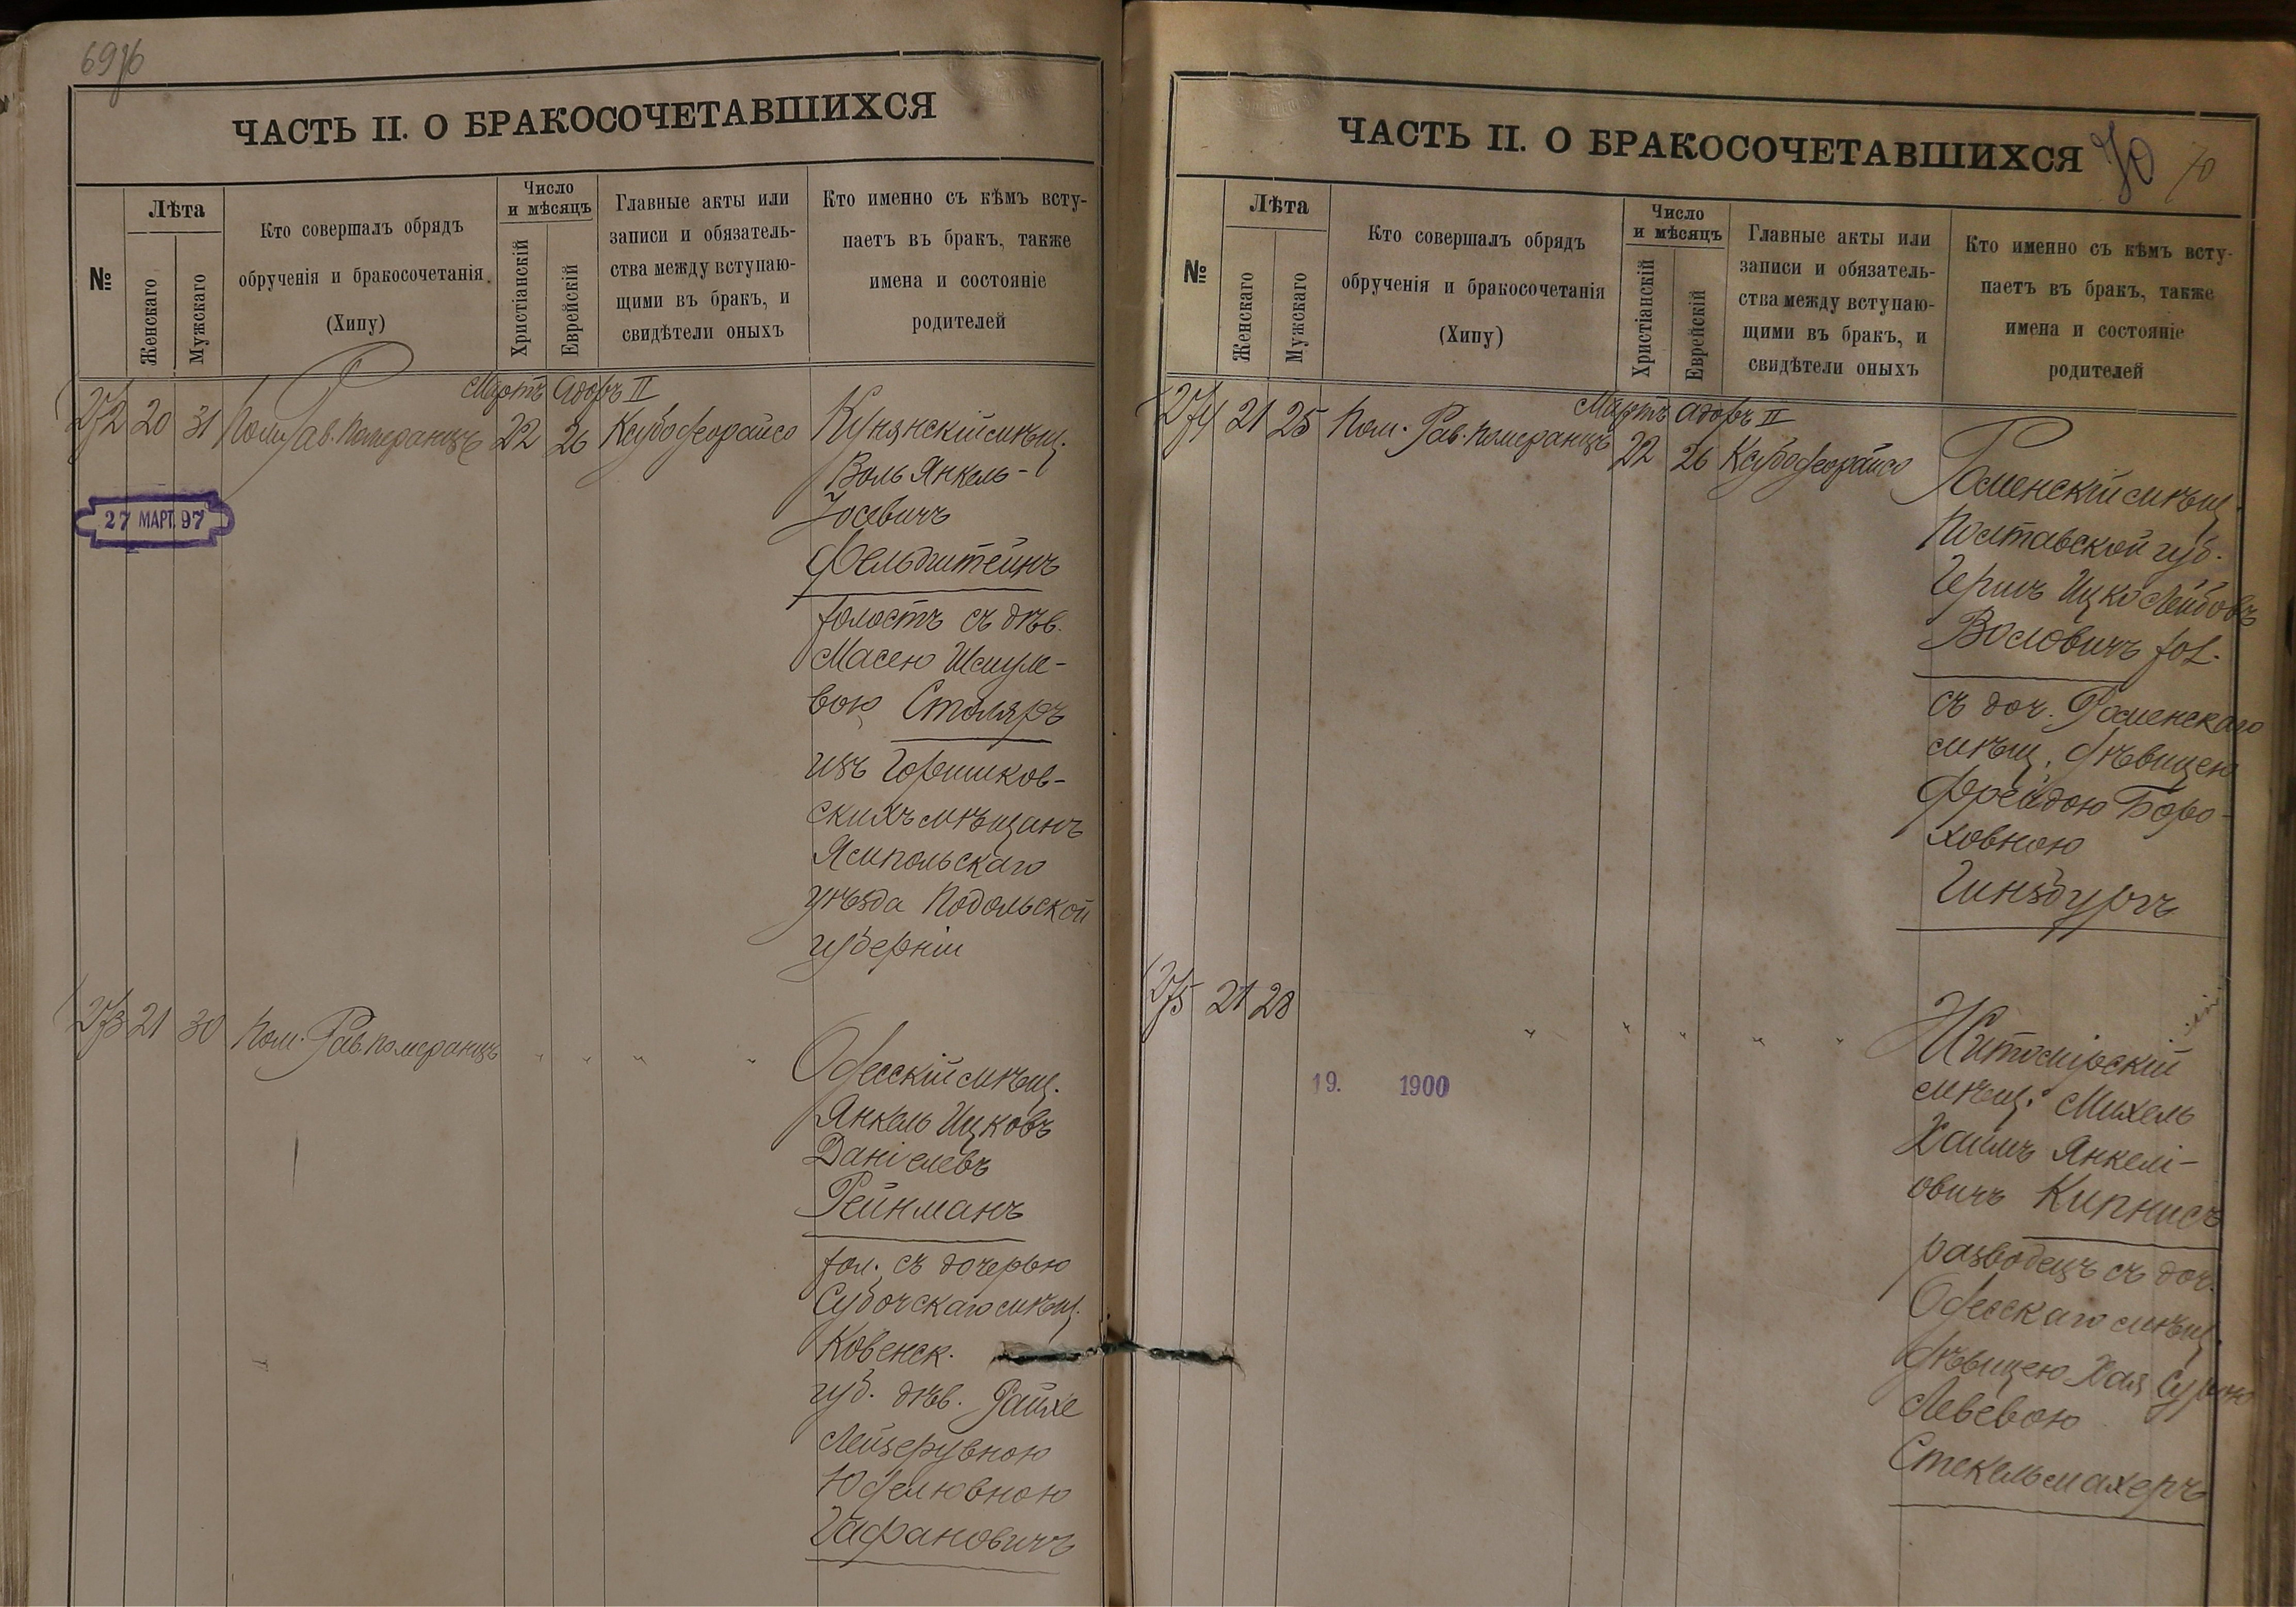 69
70
ЧАСТЬ II. О БРАКОСОЧЕТАВШИХСЯ
№
Лѣта
Женскаго
Мужскаго
Кто совершалъ обрядъ
обрученія и бракосочетанія
(Хипу)
Число
и мѣсяцъ
Христіанскій
Еврейскій
Главные акты или
записи и обязатель-
ства между вступаю-
щими въ бракъ, и
свидѣтели оныхъ
Кто именно съ кѣмъ всту-
паетъ въ бракъ, также
имена и состояніе
родителей
Мартъ Адоръ II
272 20 31 Пом. Рав. Померанцъ 22 26 Ксубо феорайсо
Кунянскій мѣщ.
Воль Янкель-
Іосевичъ
Фельдштейнъ
холостъ съ дѣв.
Масею Шмуле-
вою Столяръ
изъ Горишков-
скихъ мѣщанъ
Ямпольскаго
уѣзда Подольской
губерніи
27 МАРТ. 97
273 21 30 Пом. Рав. Померанцъ " " " "
Одесскій мѣщ.
Янкель Ицковъ
Даніелевъ
Рейнманъ
хол. съ дочерью
Субочскаго мѣщ.
Ковенск.
губ. дѣв. Райхе
Лейзерувною
Юделювною
Гафановичъ
ЧАСТЬ II. О БРАКОСОЧЕТАВШИХСЯ
70 70
№
Лѣта
Женскаго
Мужскаго
Кто совершалъ обрядъ
обрученія и бракосочетанія
(Хипу)
Число
и мѣсяцъ
Христіанскій
Еврейскій
Главные акты или
записи и обязатель-
ства между вступаю-
щими въ бракъ, и
свидѣтели оныхъ
Кто именно съ кѣмъ всту-
паетъ въ бракъ, также
имена и состояніе
родителей
Мартъ Адоръ II
274 21 25 Пом. Рав. Померанцъ 22 26 Ксубо феорайсо
Роменскій мѣщ.
Полтавской губ.
Гершъ Ицко Лейбовъ
Воловичъ хол.
съ доч. Роменскаго
мѣщ. дѣвицею
Фрейдою Боро-
ховною
Гинзбургъ
275 21 28 " " " " "
Житомірскій
мѣщ. Михель
Хаимъ Янкелі-
овичъ Кипнисъ
разводецъ съ доч.
Одесскаго мѣщ.
дѣвицею Хая Сурою
Левевою
Стекельмахеръ
19. 1900